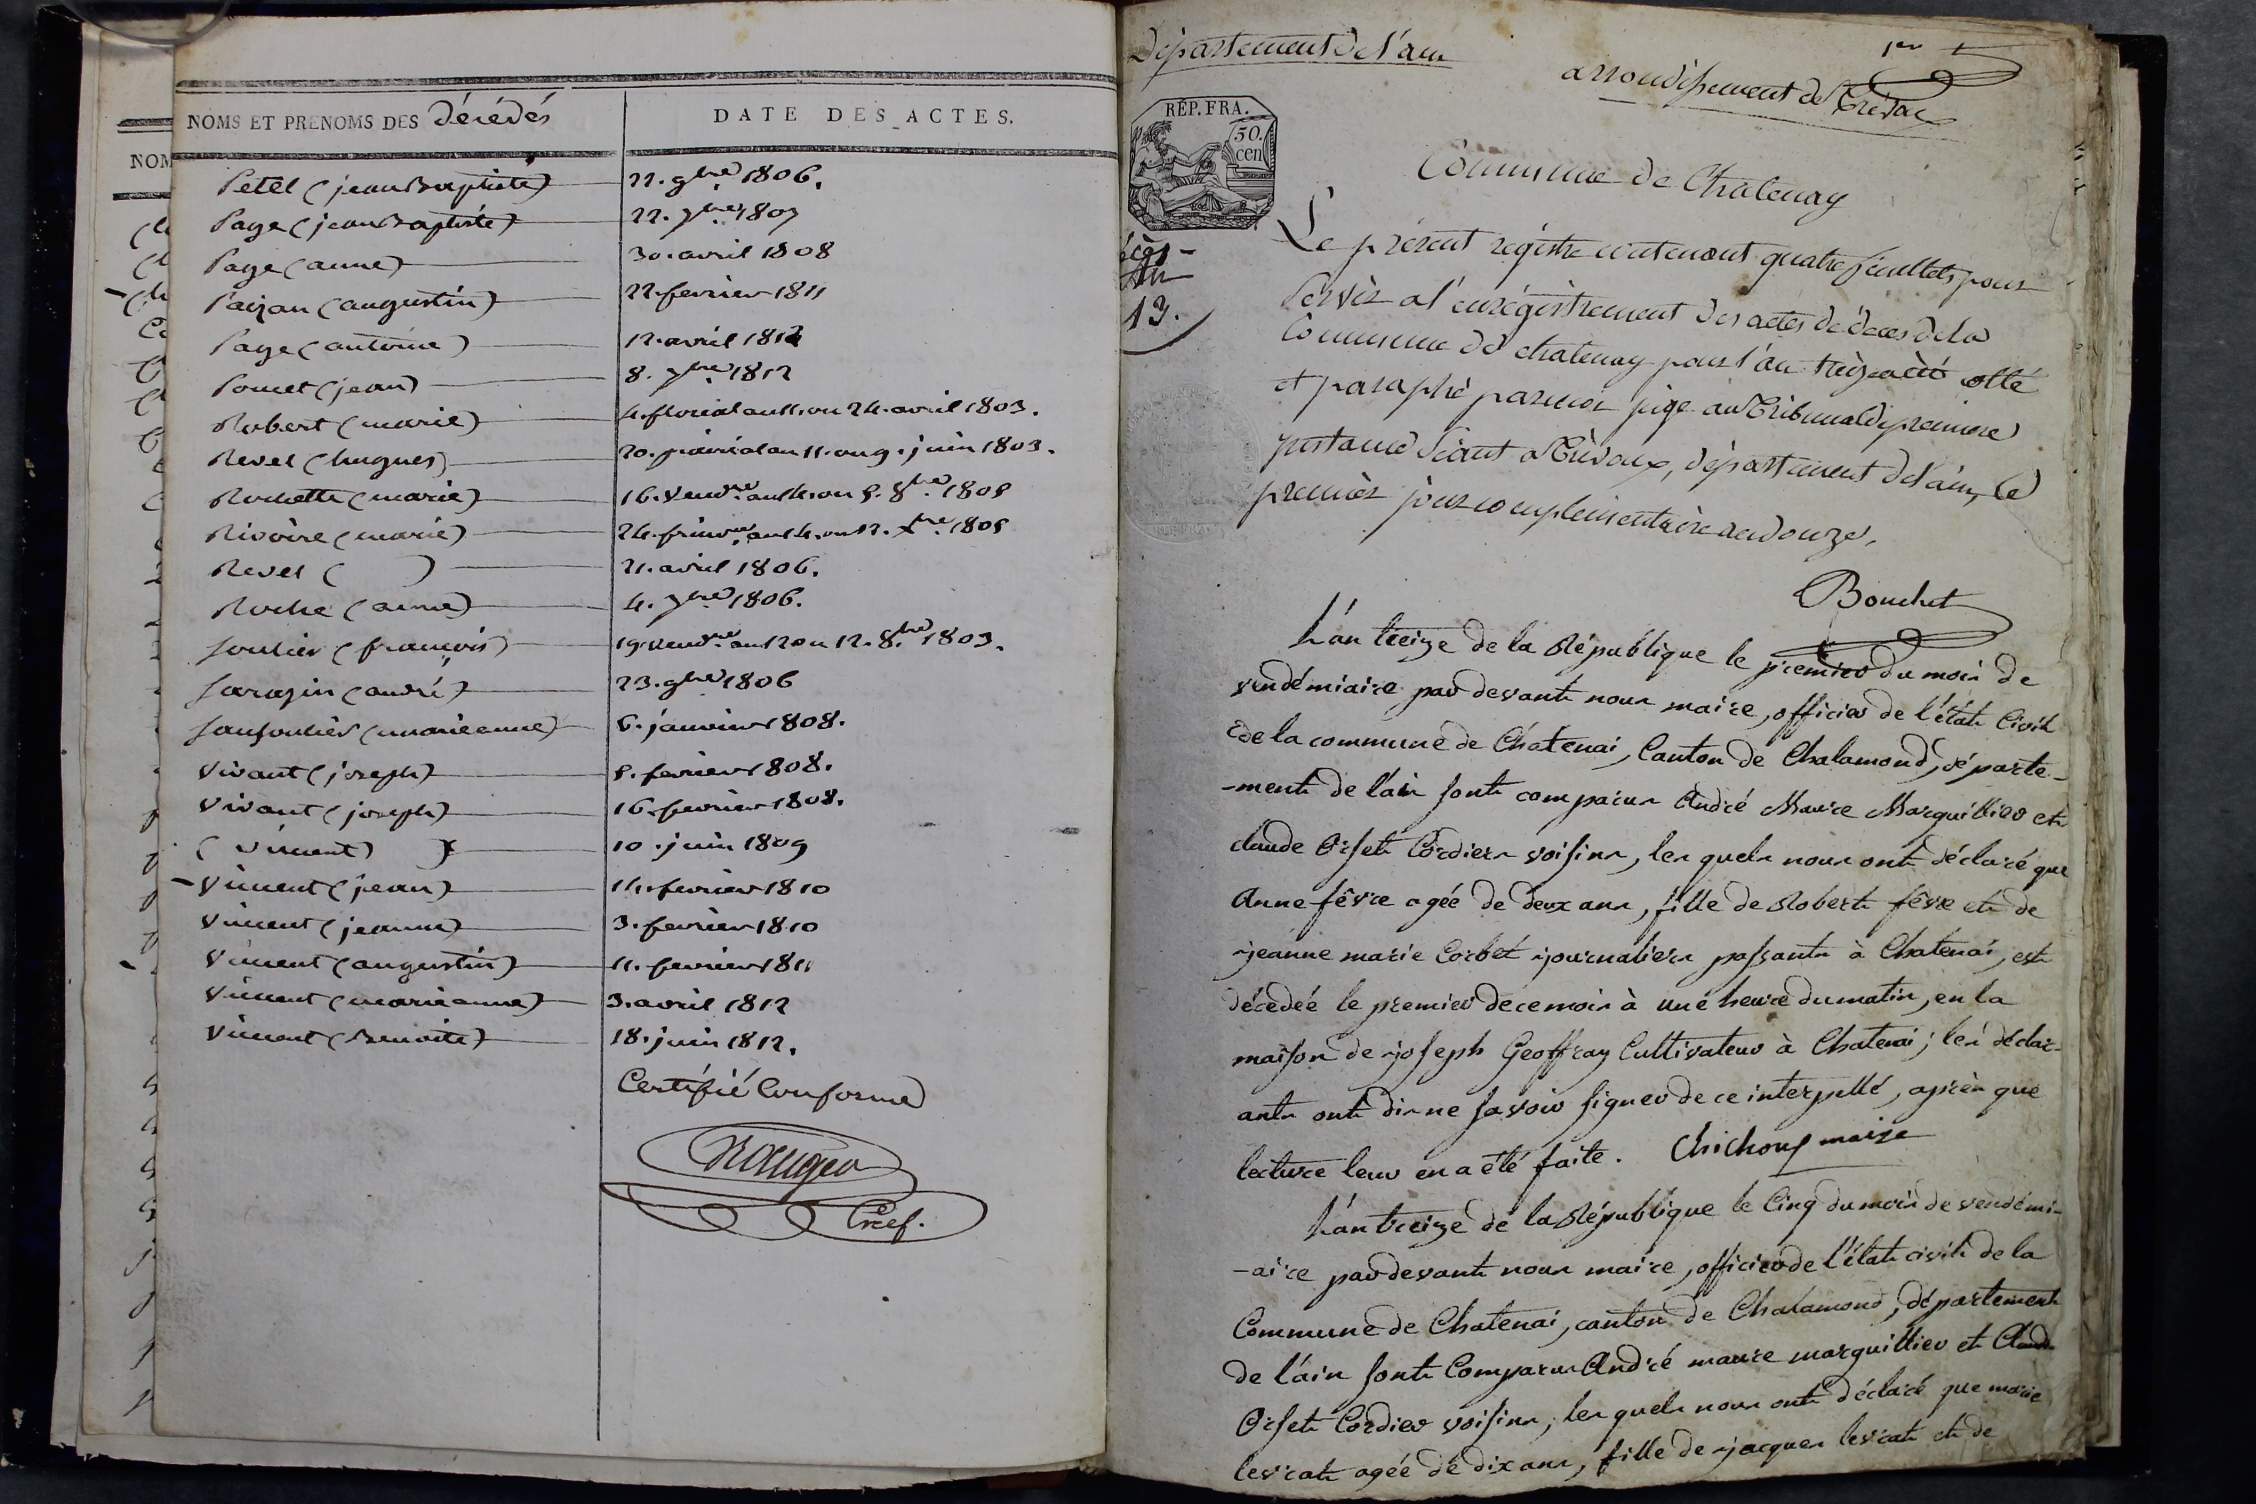 NOMS ET PRENOMS DES Décédés
DATE DES ACTES.
NOM
Petel (jean Baptiste) 22. 9bre 1806.
Page (jean Baptiste) 22. 7bre 1807
Page (anne) 30. avril 1808
Pagan (augustin) 22. fevrier 1811
Page (antoine) 12. avril 1812
Poncet (jean) 8. 7bre 1812
Robert (marie) 4. floréal an 11. ou 24. avril 1803.
Revel (hugues) 20. prairial an 11. ou 9. juin 1803.
Rochette (marie) 16. vendre. an 14. ou 8. 8bre. 1805
Rivoire (marie) 24. frimre. an 14. ou 12. Xbre. 1805
Revel ( ) 21. avril 1806.
Roche (anne) 4. 7bre 1806.
Soulier (françois) 19. vendre. an 12 ou 12. 8bre 1803.
Sarazin (andré) 23. 9bre 1806
(marieanne) 6. janvier 1808.
Vivant (joseph) 5. fevrier 1808.
Vivant (joseph) 16. fevrier 1808.
( vincent ) 10. juin 1809
Vincent (jean) 14. fevrier 1810
Vincent (jeanne) 3. fevrier 1810
Vincent (augustin) 11. fevrier 1811
Vincent (marieanne) 3. avril 1812
Vincent (Benoite) 18. juin 1812.
Certifié Conforme
Greef.
Département de l'ain
1er
arrondissement de Trévoux
RÉP. FRA.
50.
cen
Commune de Chatenay
13.
Le présent régistre contenant quatre feuillets pour
servir a l'enrégistrement des actes de décès de la
Commune de chatenay pour l'an treize a été coté
et paraphé par moi juge au Tribunal de premiere
instance séant a Trévoux, département de l'ain, le
premier jour complementaire an douze.
Bouchet
L'an treize de la République le premier du mois de
vendémiaire par devant nous maire, officier de l'état Civil
de la commune de Chatenai, Canton de Chalamond, départe-
-ment de l'ain sont comparus André Maure Marguillier et
claude Orset Cordiers voisins, les quels nous ont déclaré que
Anne fêvre agée de deux ans, fille de Robert fêvre et de
jeanne marie Corbet journaliers passants à Chatenai, est
décedée le premier de ce mois à une heure du matin, en la
maison de joseph Geoffray Cultivateur à Chatenai; les déclar-
ants ont dis ne savoir signer de ce interpellé, après que
lecture leur en a été faite. Chichoux maire
L'an treize de la République le Cinq du mois de vendémi-
-aire par devant nous maire, officier de l'état civil de la
Commune de Chatenai, canton de Chalamond, département
de l'ain sont Comparus André maure marguillier et Claude
Orset Cordier voisins, les quels nous ont déclaré que marie
levrat agée de dix ans, fille de jacques levrat et de